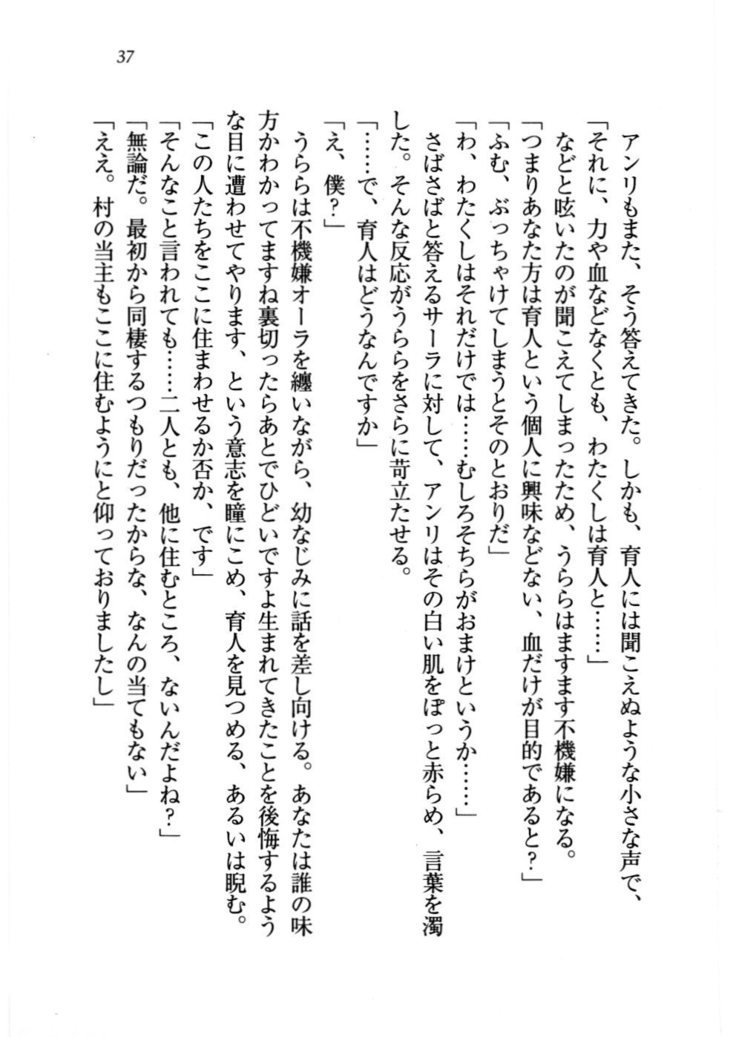 37
アンリもまた、そう答えてきた。しかも、育人には聞こえぬような小さな声で、
「それに、力や血などなくとも、わたくしは育人と……」
などと呟いたのが聞こえてしまったため、うららはますます不機嫌になる。
「つまりあなた方は育人という個人に興味などない、血だけが目的であると？」
「ふむ、ぶっちゃけてしまうとそのとおりだ」
「わ、わたくしはそれだけでは……むしろそちらがおまけというか……」
さばさばと答えるサーラに対して、アンリはその白い肌をぽっと赤らめ、言葉を濁
した。そんな反応がうららをさらに苛立たせる。
「……で、育人はどうなんですか」
「え、僕？」
うららは不機嫌オーラを纏いながら、幼なじみに話を差し向ける。あなたは誰の味
方かわかってますね裏切ったらあとでひどいですよ生まれてきたことを後悔するよう
な目に遭わせてやります、という意志を瞳にこめ、育人を見つめる、あるいは睨む。
「この人たちをここに住まわせるか否か、です」
「そんなこと言われても……二人とも、他に住むところ、ないんだよね？」
「無論だ。最初から同棲するつもりだったからな、なんの当てもない」
「ええ。村の当主もここに住むようにと仰っておりましたし」